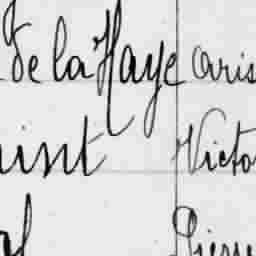 de la Haye aris
int Victo